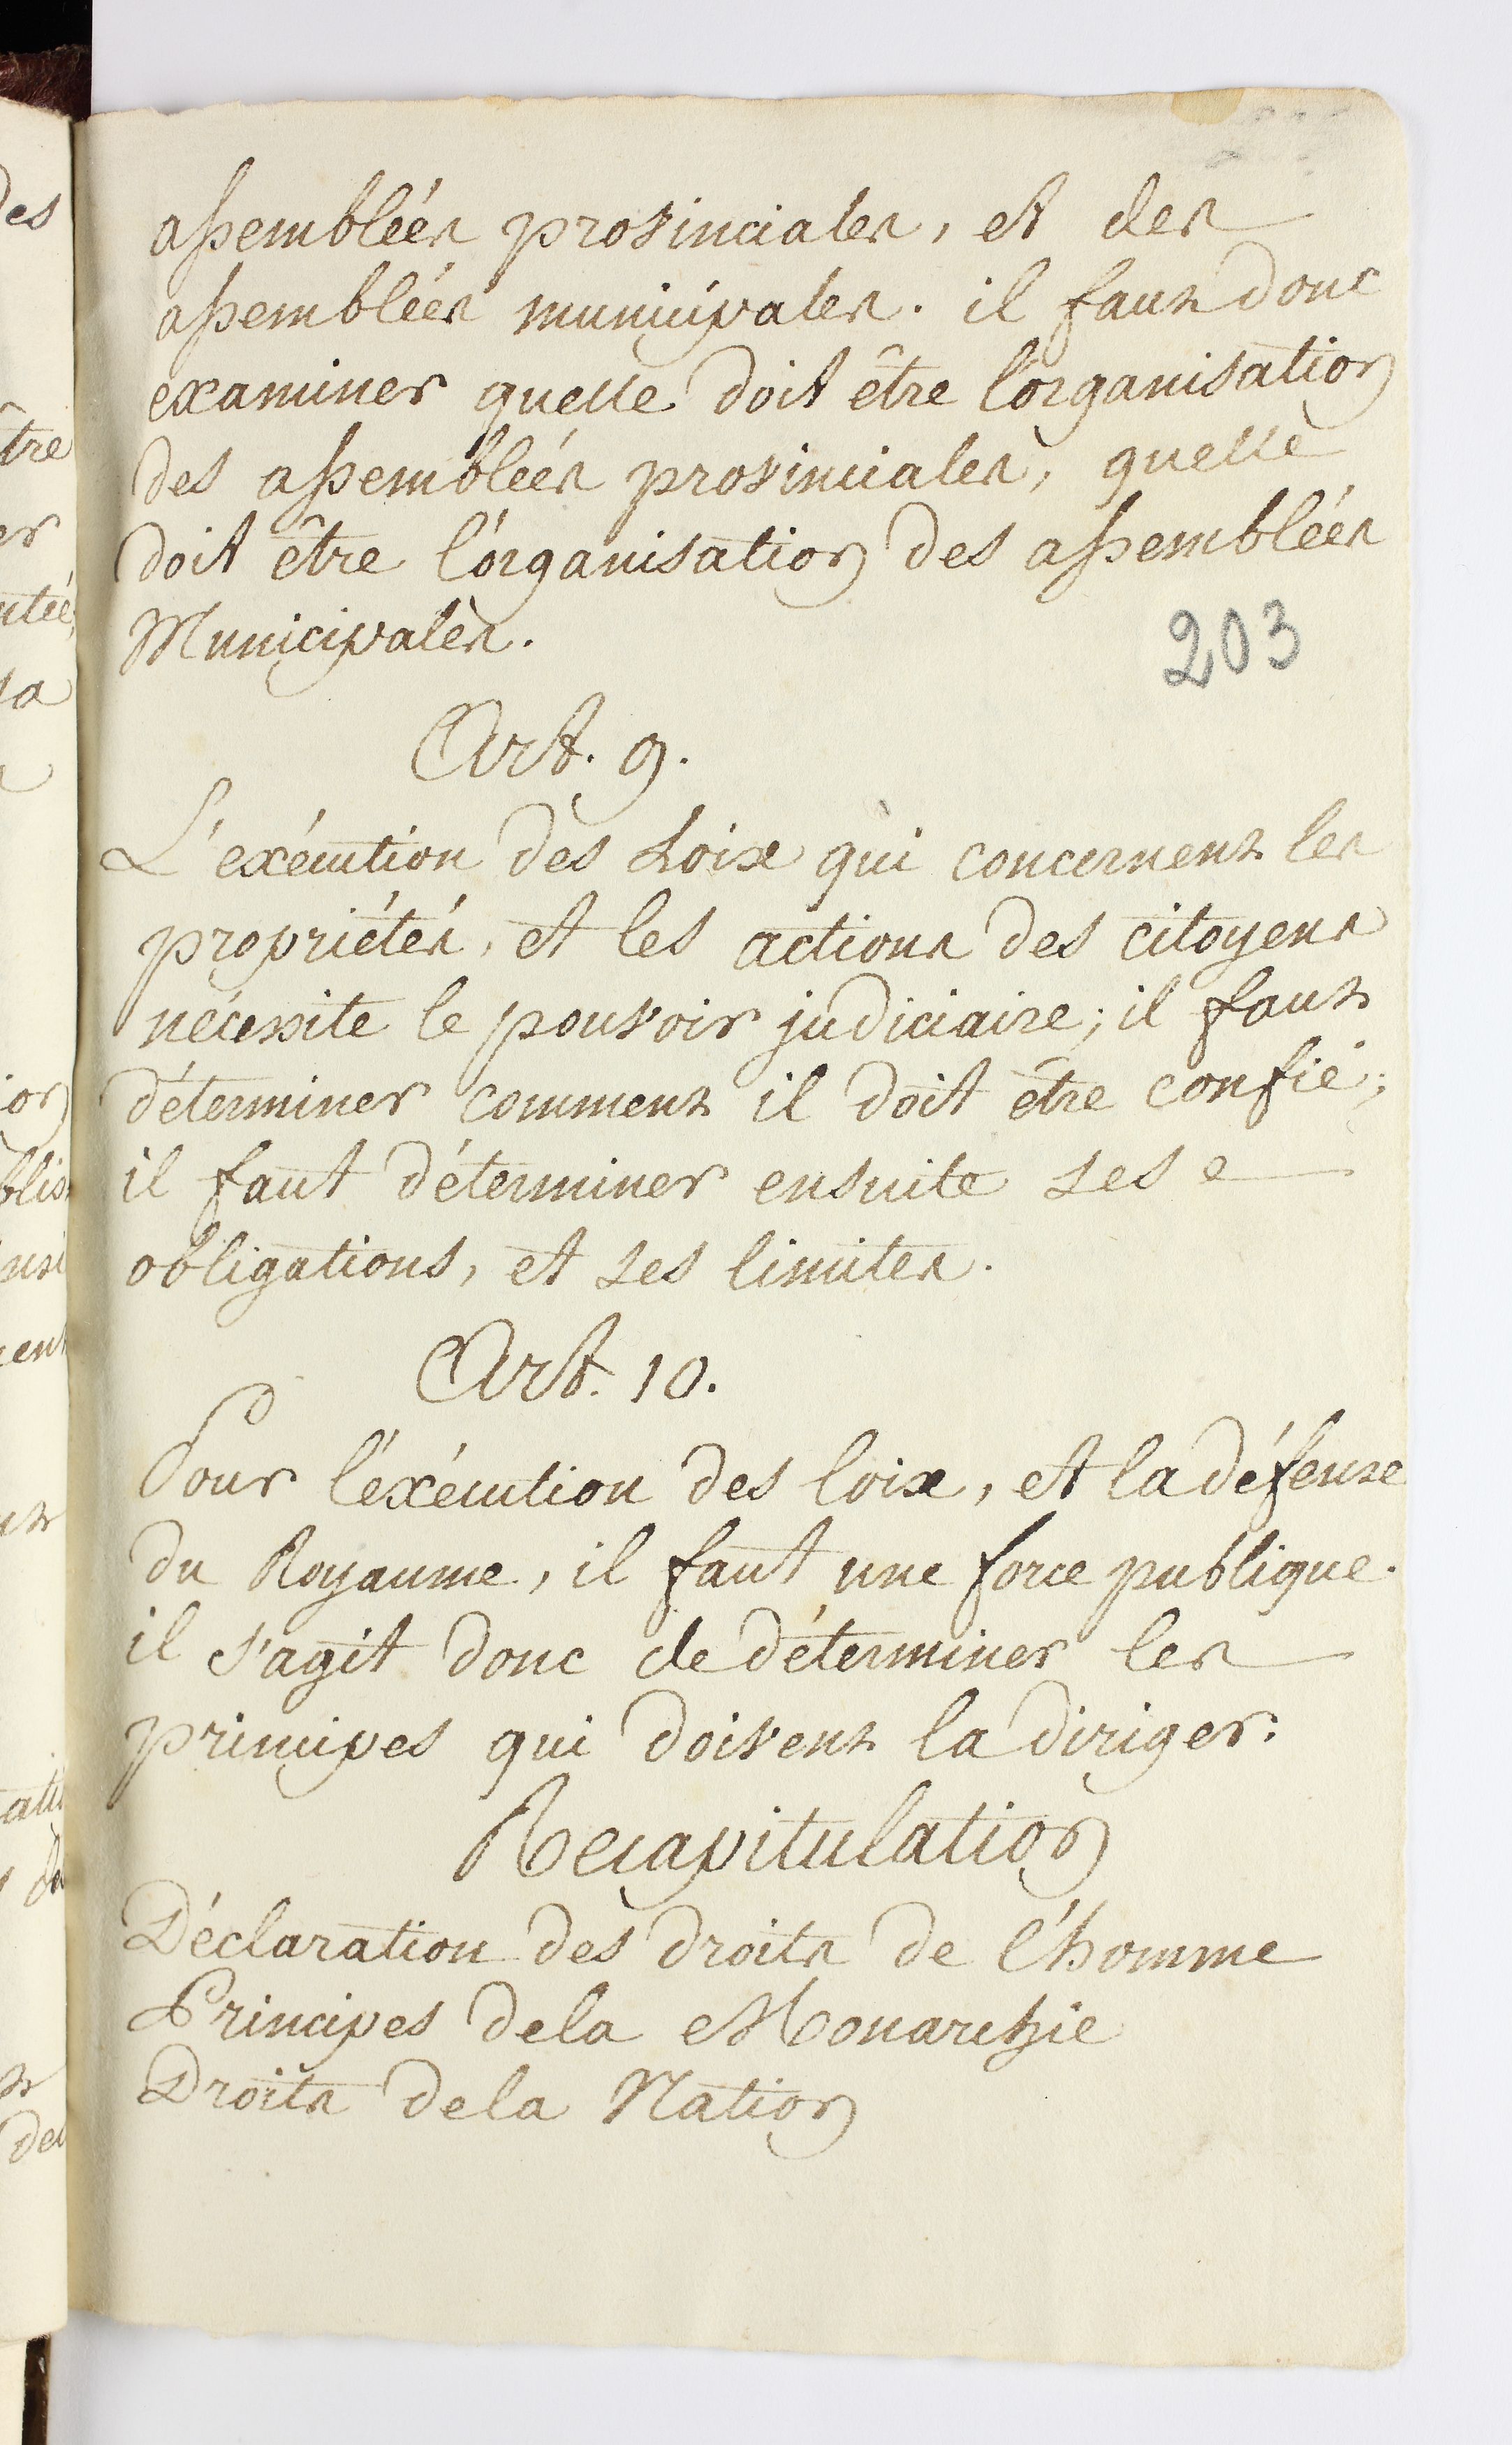 assemblées provinciales, et des
assemblées municipales. il faut donc
examiner quelle doit être l'organisation
des assemblées provinciales, quelle
doit être l'organisation des assemblées
Municipales.
203
Art. 9.
L'exécution des Loix qui concernent les
propriétés, et les actions des citoyens
nécessite le pouvoir judiciaire; il faut
déterminer comment il doit être confié;
il faut déterminer ensuite ses
obligations, et ses limites.
Art. 10.
Pour l'exécution des loix, et la défense
du Royaume, il faut une force publique.
il s'agit donc de déterminer les
principes qui doivent la diriger.
Recapitulation
Déclaration des droits de l'homme
Principes de la Monarchie
Droits de la Nation